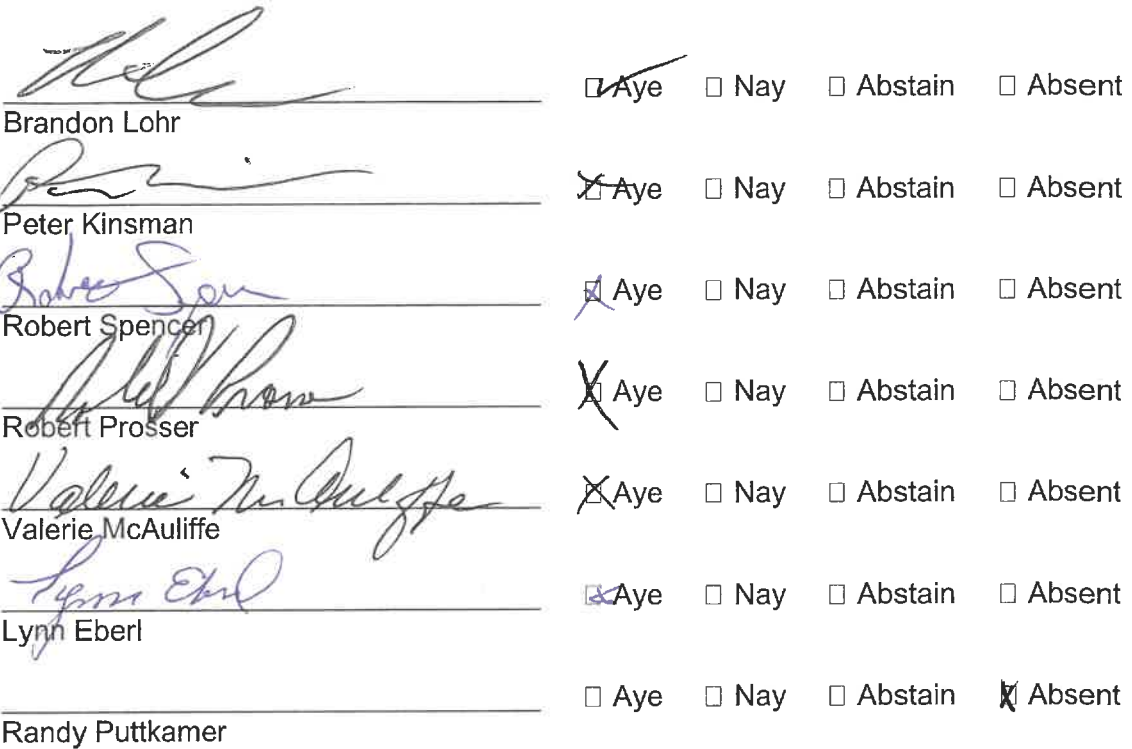 ☑ Aye ☐ Nay ☐ Abstain ☐ Absent
Brandon Lohr
☒ Aye ☐ Nay ☐ Abstain ☐ Absent
Peter Kinsman
☒ Aye ☐ Nay ☐ Abstain ☐ Absent
Robert Spencer
☒ Aye ☐ Nay ☐ Abstain ☐ Absent
Robert Prosser
Valerie McAuliffe ☒ Aye ☐ Nay ☐ Abstain ☐ Absent
Valerie McAuliffe
Lynn Eberl ☒ Aye ☐ Nay ☐ Abstain ☐ Absent
Lynn Eberl
☐ Aye ☐ Nay ☐ Abstain ☒ Absent
Randy Puttkamer